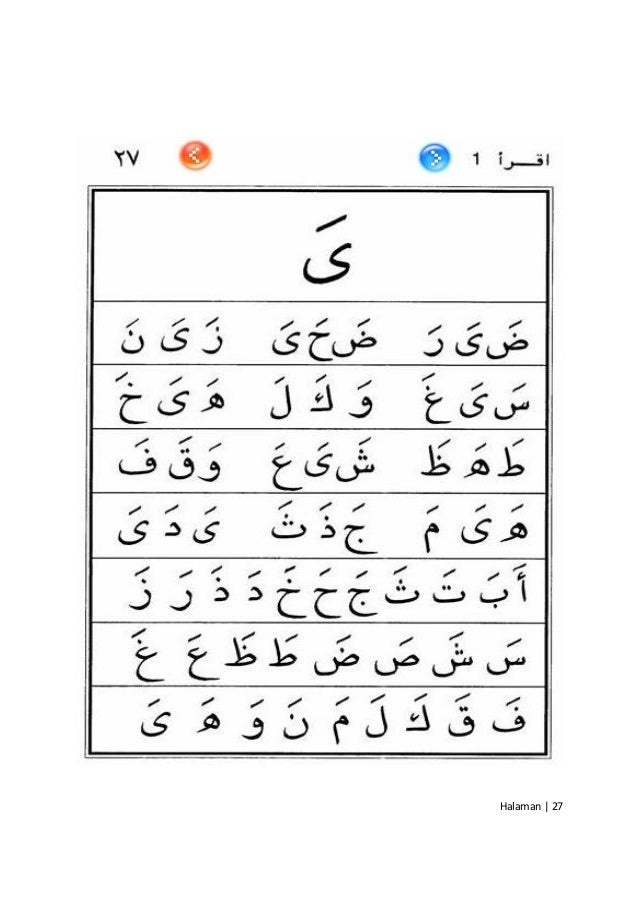 اقـــرأ 1 ٢٧
یَ
ضَ یَ رَ ضَ حَ یَ زَ یَ نَ
سَ یَ غَ وَ كَ لَ هَ یَ خَ
طَ هَ ظَ شَ یَ عَ وَ قَ فَ
هَ یَ مَ جَ ذَ ثَ یَ دَ یَ
أَ بَ تَ ثَ جَ حَ خَ دَ ذَ رَ زَ
سَ شَ صَ ضَ طَ ظَ عَ غَ
فَ قَ كَ لَ مَ نَ وَ هَ یَ
Halaman | 27